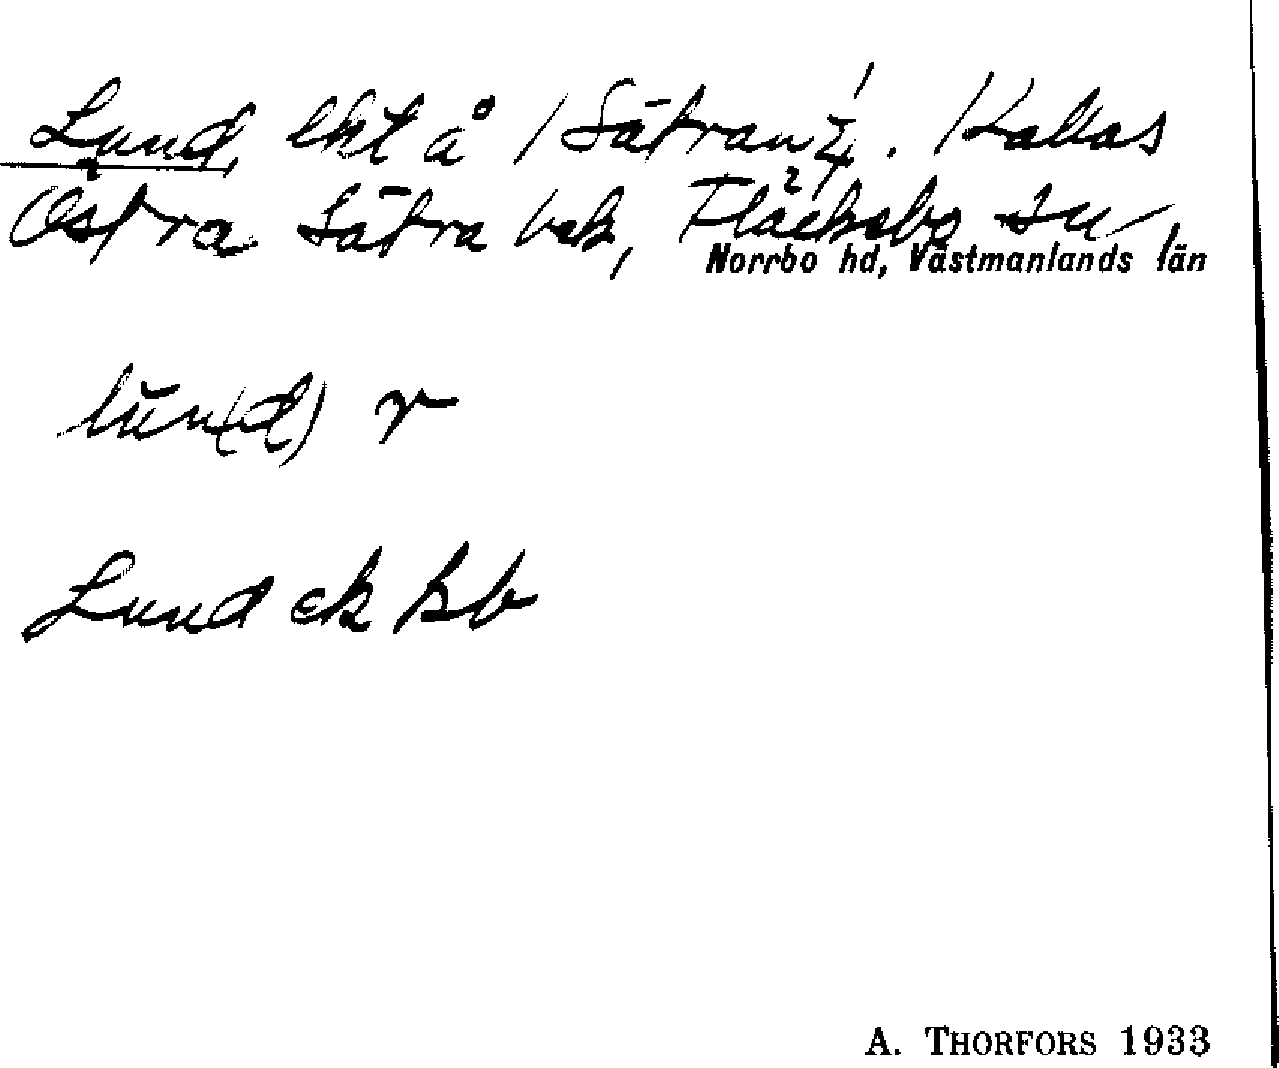 Lund, lht å Sätran 1/4. Kallas
Östra Sätra bek, Fläckebo sn,
Norrbo hd, Västmanlands län
lun(d) r
Lund ek kb
A. THORFORS 1933